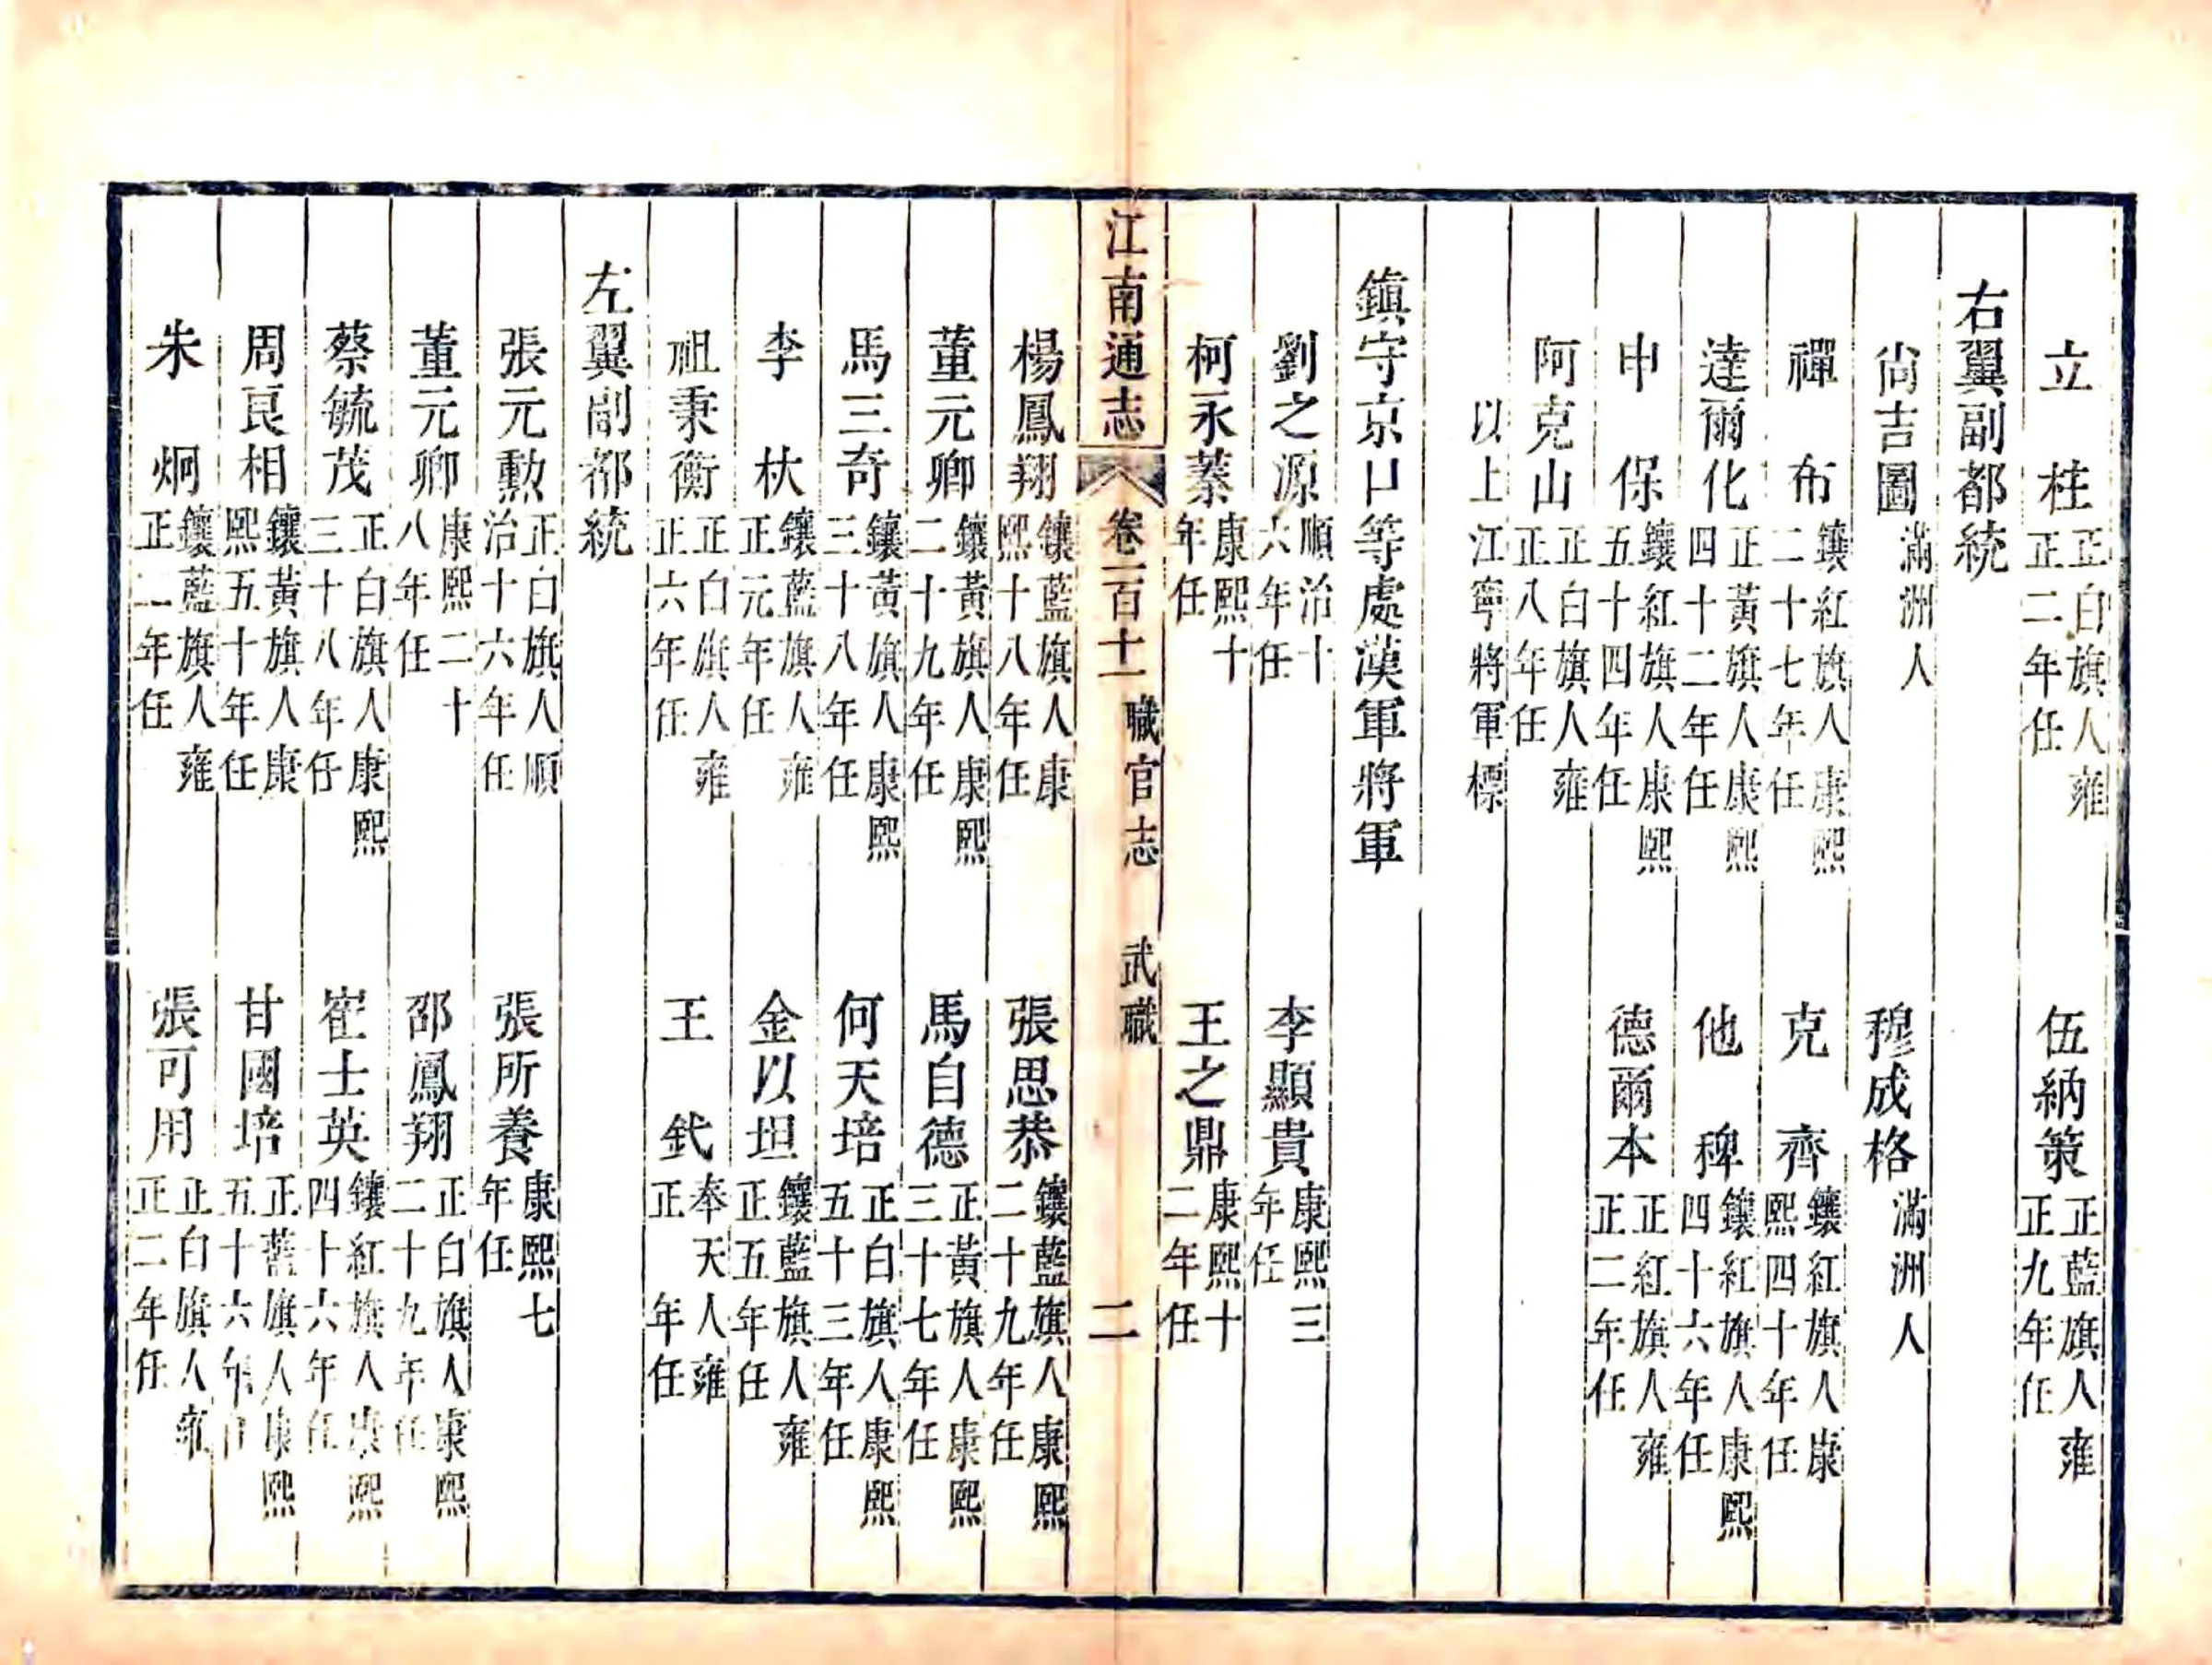 立　柱正白旗人雍正二年任　伍納策正藍旗人雍正九年任
右翼副都統
尚吉圖滿洲人　穆成格滿洲人
禪　布鑲紅旗人康熙二十七年任　克　齊鑲紅旗人康熙四十年任
達爾化正黃旗人康熙四十二年任　他　稗鑲紅旗人康熙四十六年任
申　保鑲紅旗人康熙五十四年任　德爾本正紅旗人雍正二年任
阿克山正白旗人雍正八年任
以上江寧將軍標
鎮守京口等處漢軍將軍
劉之源順治十六年任　李顯貴康熙三年任
柯永蓁康熙十年任　王之鼎康熙十二年任
江南通志　卷一百十一　職官志　武職　二
楊鳳翔鑲藍旗人康熙十八年任　張思恭鑲藍旗人康熙二十九年任
董元卿鑲黃旗人康熙二十九年任　馬自德正黃旗人康熙三十七年任
馬三奇鑲黃旗人康熙三十八年任　何天培正白旗人康熙五十三年任
李　杕鑲藍旗人雍正元年任　金以坦鑲藍旗人雍正五年任
祖秉衡正白旗人雍正六年任　王　釴奉天人雍正　年任
左翼副都統
張元勳正白旗人順治十六年任　張所養康熙七年任
董元卿康熙二十八年任　邵鳳翔正白旗人康熙二十九年任
蔡毓茂正白旗人康熙三十八年任　崔士英鑲紅旗人康熙四十六年任
周良相鑲黃旗人康熙五十年任　甘國培正藍旗人康熙五十六年任
朱　炯鑲藍旗人雍正二年任　張可用正白旗人雍正二年任